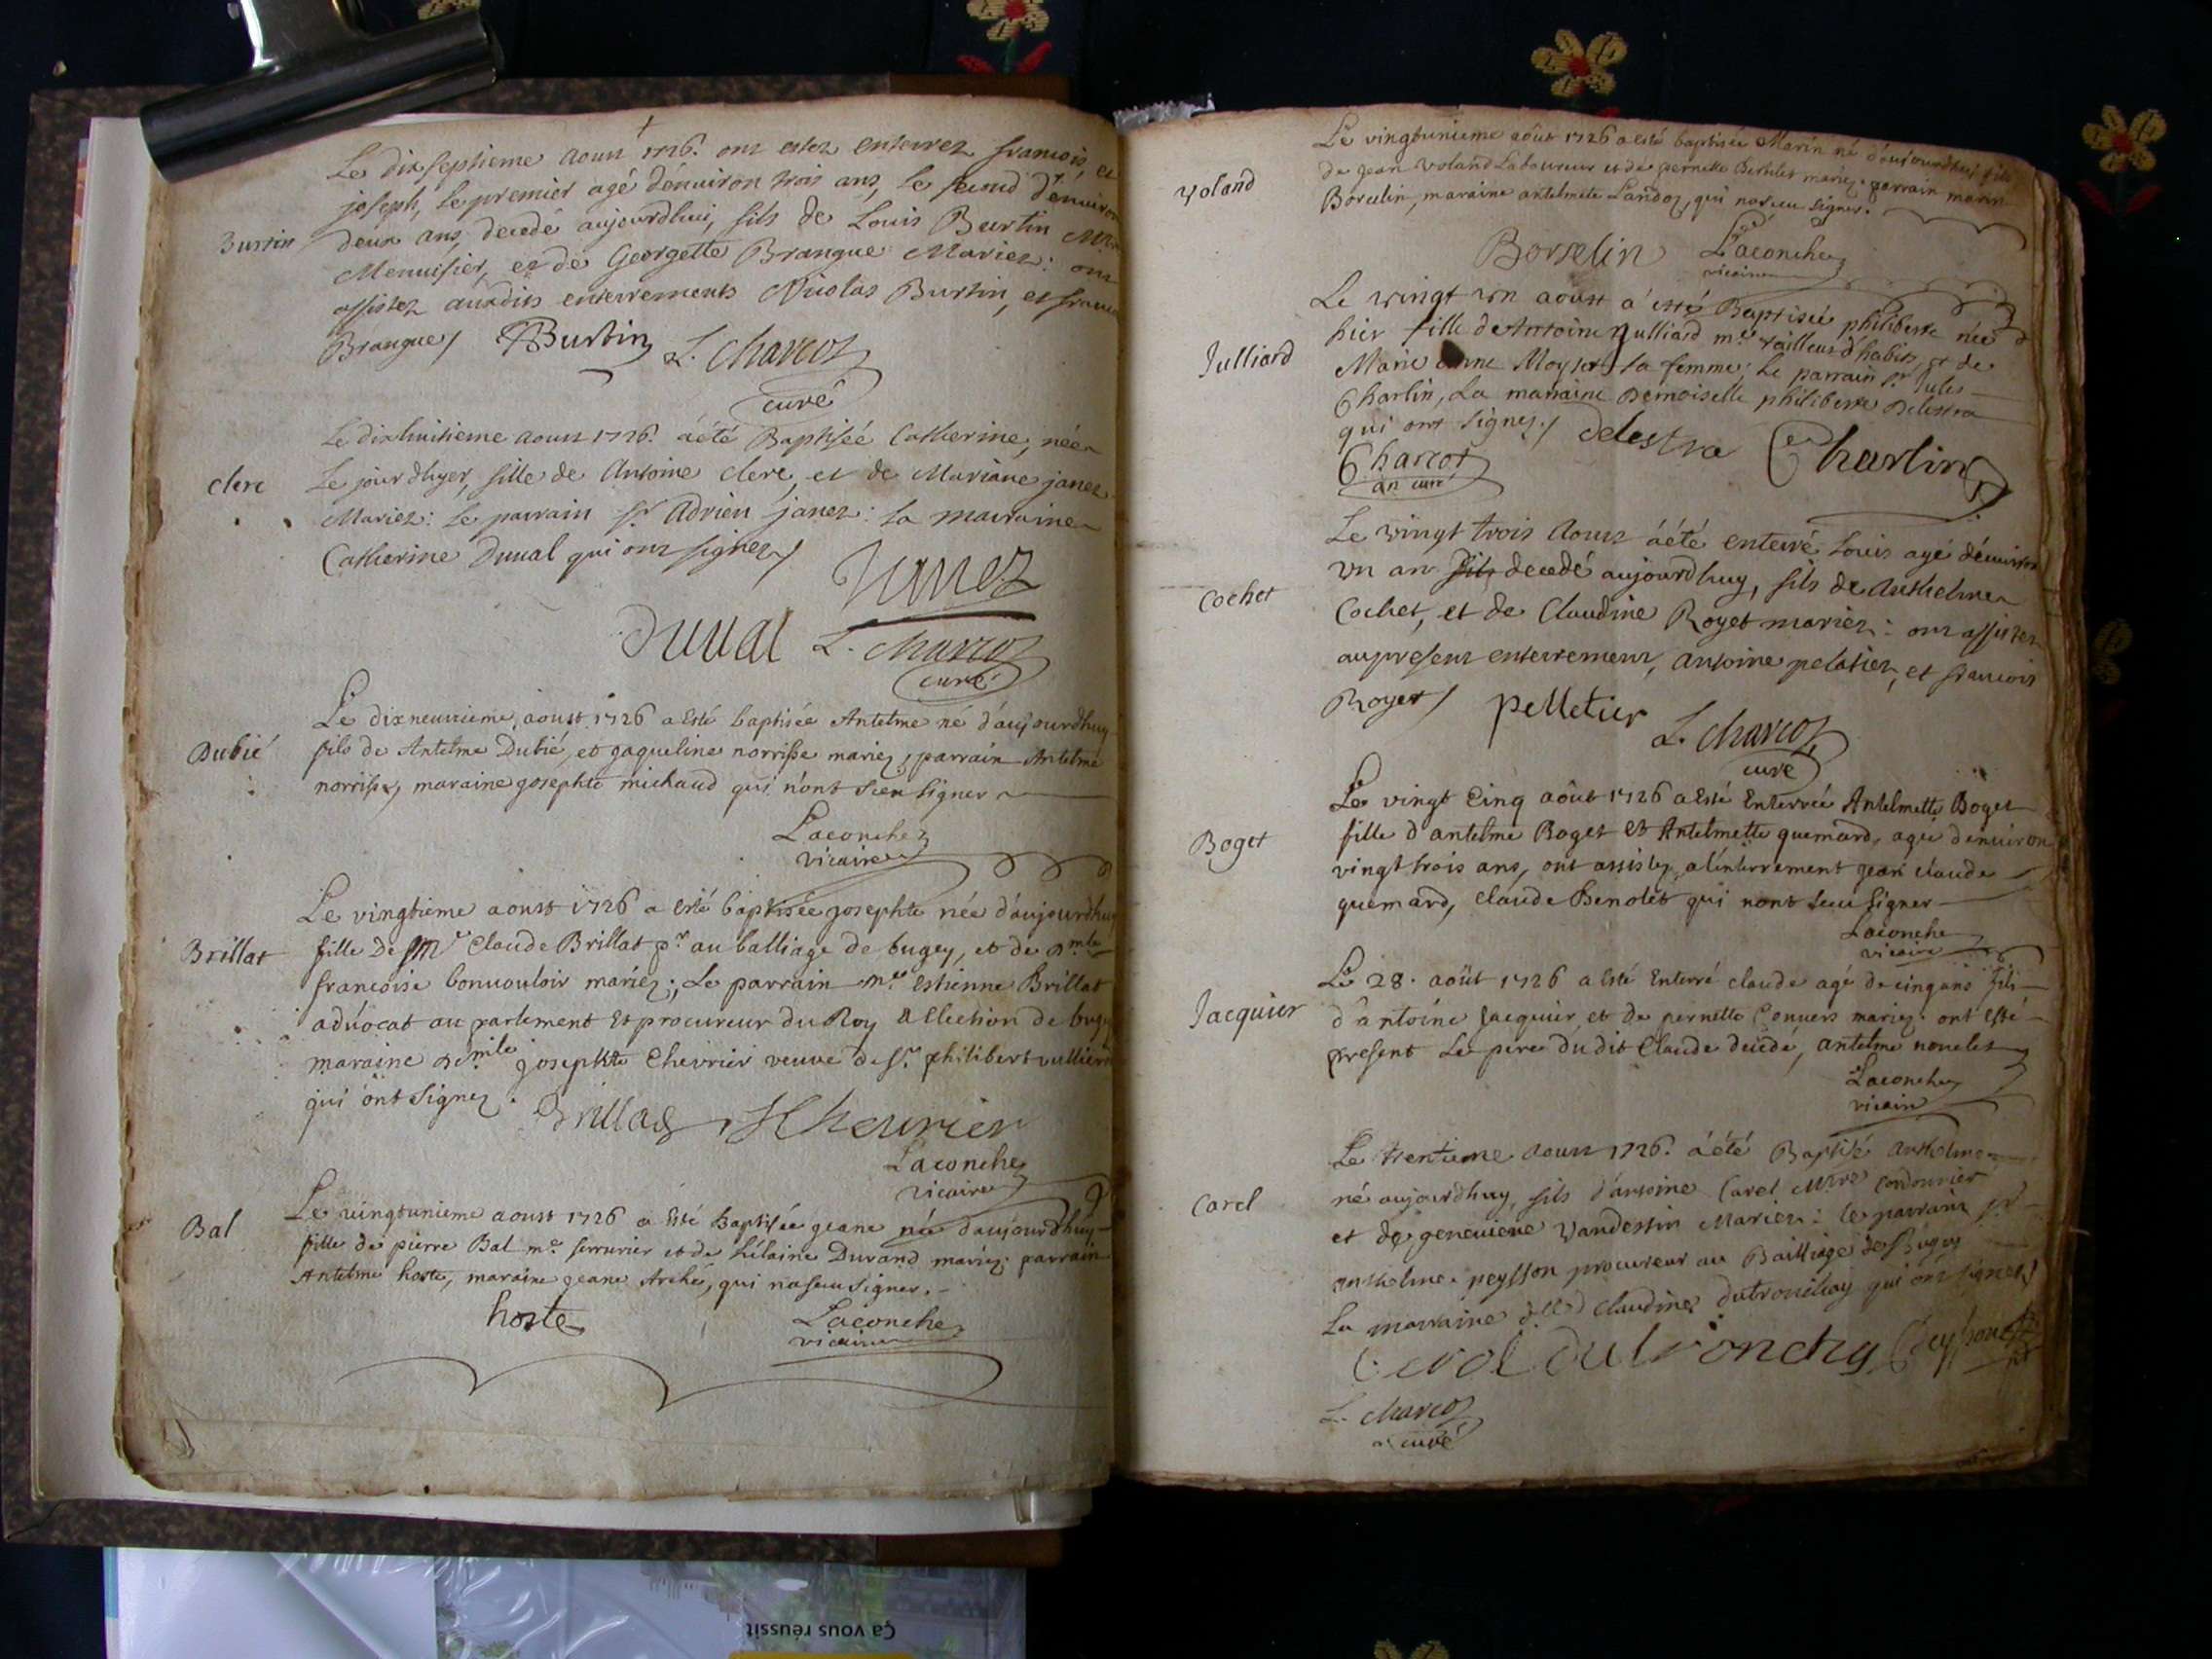 Le dix septieme aoust 1726. ont estez enterrez francois, et
joseph, le premier agé d'environ trois ans, le second d'environ
Burtin
deux ans, decedé aujourdhui, fils de Louis Burtin Mtre
Menuisier, et de Georgette Brangue Mariez: ont
assistez auxdits enterrements Nicolas Burtin, et
Brangue / Burtin L. Charcot
curé
Le dixhuitieme aoust 1726. a été Baptisée Catherine, née
Clerc
le jour dhyer, fille de Antoine Clerc, et de Mariane janez
Mariez: Le parrain Sr. Adrien janez: la marraine
Catherine Duval qui ont signez /
Janez
Duval L. Charcot
curé
Le dixneuvieme aoust 1726 a esté baptisée Antelme né d'aujourdhuy
Dubié
fils de Antelme Dubié, et jaqueline norrisse mariez, parrain Antelme
norrisse, maraine josephte michaud qui n'ont sceu signer
Laconche
vicaire
Le vingtieme aoust 1726 a esté baptisée josephte née d'aujourdhuy
Brillat
fille De Me Claude Brillat pr. au balliage de bugey, et de Dmlle
francoise bonvouloir mariez; Le parrain Me. Estienne Brillat
advocat au parlement et procureur du Roy a Election de bugey
maraine Demlle josephte Chevrier veuve de Sr. philibert
qui ont signez.
Brillat Chevrier
Laconche
vicaire
Le vingtunieme aoust 1726 a esté baptisée jeane née d'aujourdhuy
Bal
fille de pierre Bal me. serrurier et de hélaine Durand mariez; parrain
Antelme hoste, maraine jeane Arché, qui n'a sceu signer.
hoste
Laconche
vicaire
Le vingtunieme août 1726 a esté baptisée Marin né d'aujourdhuy fils
voland
de jean voland Laboureur et de pernette Berthlet mariez. parrain marin
Borselin, maraine antelmete Landoz, qui n'a sceu signer.
Borselin Laconche
vicaire
Le vingt un aoust a esté Baptisée philiberte née
hier fille de Antoine Julliard me. tailleur d'habits et de
Julliard
Marie anne Moyret sa femme; Le parrain Sr Jules
Charlin, La marraine Demoiselle philiberte Delestra
qui ont signez. / Delestra Charlin
Charcot
an curé
Le vingt trois Aoust a été enterré Louis agé d'environ
un an fils decedé aujourdhuy, fils de Anthelme
Cochet
Cochet, et de Claudine Royet mariez: ont assistez
au present enterrement, Antoine pelatier, et francois
Royet / Pelletier
L. Charcot
curé
Le vingt Cinq août 1726 a esté Enterrée Antelmette Boget
Boget
fille d'antelme Boget Et Antelmette quemard, agée d'environ
vingt trois ans, ont assistez a l'enterrement jean claude
quemard, claude Benolet qui n'ont sceu signer
Laconche
vicaire
Le 28. août 1726 a esté Enterré claude agé de cinq ans fils
Jacquier
d'antoine Jacquier et de pernette Convers mariez. ont esté
present Le pere du dit Claude decedé, antelme
Laconche
vicaire
Le trentieme aoust 1726. a été Baptisé anthelme
Carel
né aujourdhuy, fils d'antoine Carel Mtre Cordonnier
et de genevieve Vandessin Mariez: le parrain Sr
anthelme peysson procureur au Bailliage de Bugey
La marraine dlle Claudine Dutronchay qui ont signez /
Carel dutronchy Peysson
L. Charcot
curé
Ça vous réussit